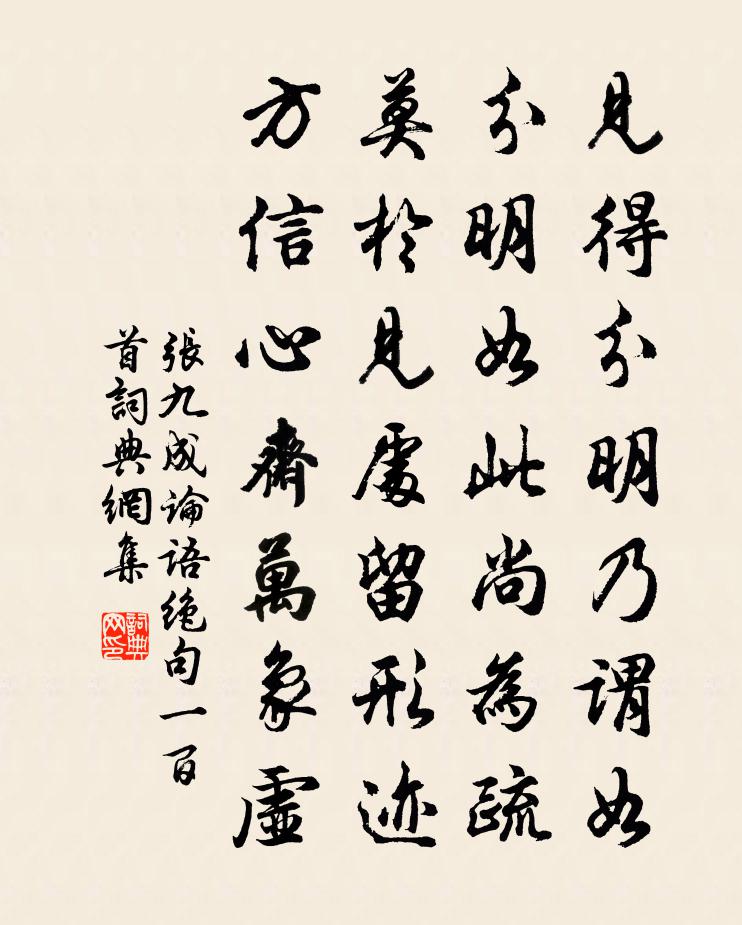 見得分明乃謂如
分明如此尚為疏
莫於見處留形迹
方信心齋萬象虛
張九成論語絕句一百
首詞典網集
詞典网印